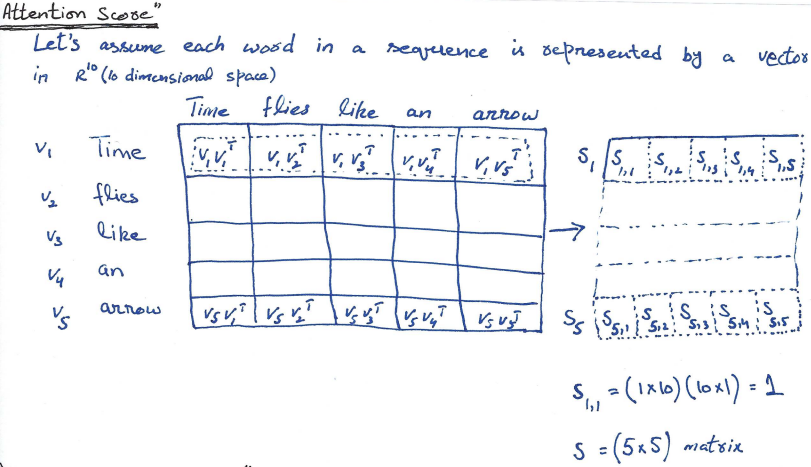 Attention Score"
Let's assume each word in a sequence is represented by a vector
in R¹⁰ (10 dimensional space)
Time flies like an arrow
V₁ Time V₁V₁ᵀ V₁V₂ᵀ V₁V₃ᵀ V₁V₄ᵀ V₁V₅ᵀ S₁ S₁,₁ S₁,₂ S₁,₃ S₁,₄ S₁,₅
V₂ flies
V₃ like →
V₄ an
V₅ arrow V₅V₁ᵀ V₅V₂ᵀ V₅V₃ᵀ V₅V₄ᵀ V₅V₅ᵀ S₅ S₅,₁ S₅,₂ S₅,₃ S₅,₄ S₅,₅
S₁,₁ = (1×10) (10×1) = 1
S = (5×5) matrix